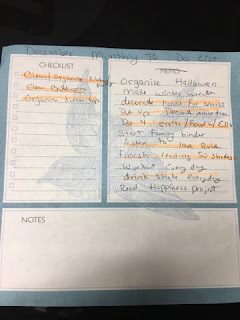 December Monthly To Do List
CHECKLIST
Clean/organize
Clean Bathroom
Organize
MEMO
Organize Halloween
Make winter wreath
decorate house for
Put up Decorate tree
Do 4
Start family binder
listen to
Finish reading 50 Shades
Workout Every day
drink Shake Everyday
Read Happiness Project
NOTES